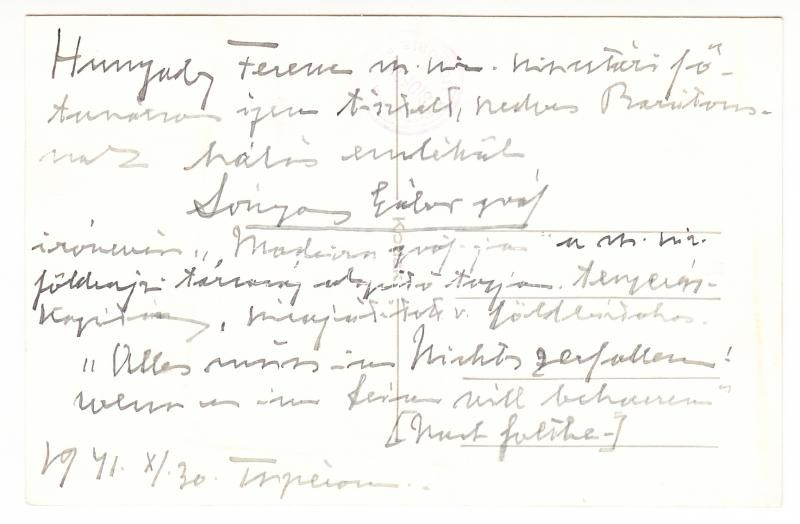 Hunyady Ferenc m. kir. kincstári fő-
tanácsos igen tisztelt, kedves Barátom-
nak hálás emlékül
Gábor gróf
írónevén „Madeira grófja" a m. kir.
földrajzi társaság alapító tagja. tengerész-
kapitány,
„Alles muss in Nichts zerfallen!
wenn es im Sein will beharren"
[Nach Goethe-]
1941. XI/30.